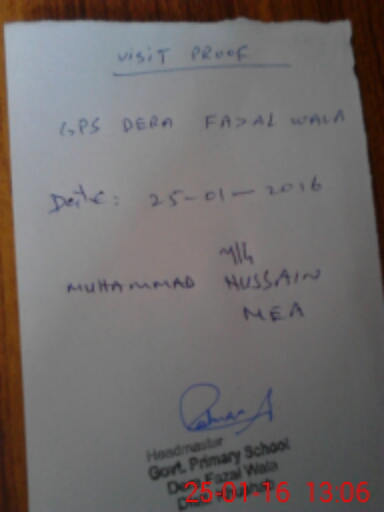 VISIT PROOF
GPS DERA FAZAL WALA
Date: 25-01-2016
MUHAMMAD HUSSAIN
MEA
Headmaster
Govt. Primary School
Dera Fazal Wala
Distt.
25-01-16 13:06